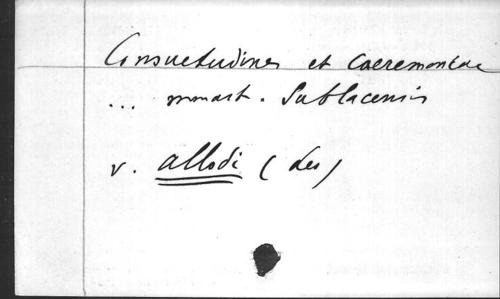 Consuetudines et Caeremoniae
... monast. Sublacensis
v. Allodi (Leo)